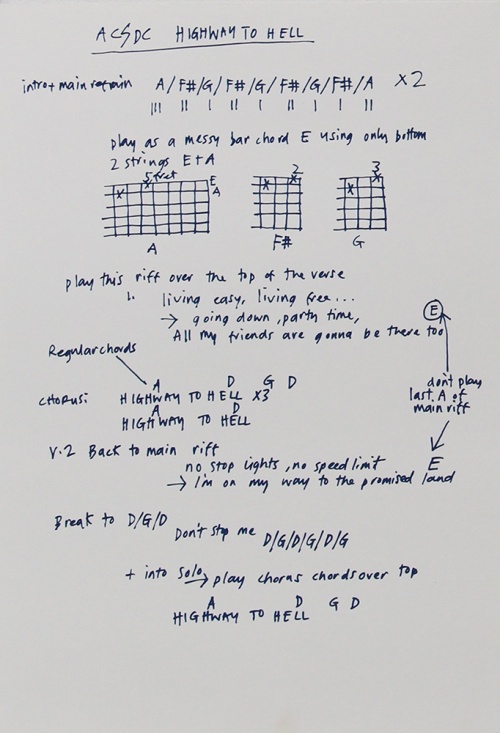 AC⚡DC HIGHWAY TO HELL
intro + main refrain A/F#/G/F#/G/F#/G/F#/A x2
||| || | || | || | | ||
play as a messy bar chord E using only bottom
2 strings E+A
5 fret E
A
2
3
A F# G
play this riff over the top of the verse
living easy, living free...
→ going down, party time,
All my friends are gonna be there too
E
Regular chords
A D G D
CHORUS: HIGHWAY TO HELL x3
A D
HIGHWAY TO HELL
don't play
last A of
main riff
V.2 Back to main riff
no stop lights, no speed limit
E
→ I'm on my way to the promised land
Break to D/G/D
Don't stop me D/G/D/G/D/G
+ into solo → play chorus chords over top
A D G D
HIGHWAY TO HELL